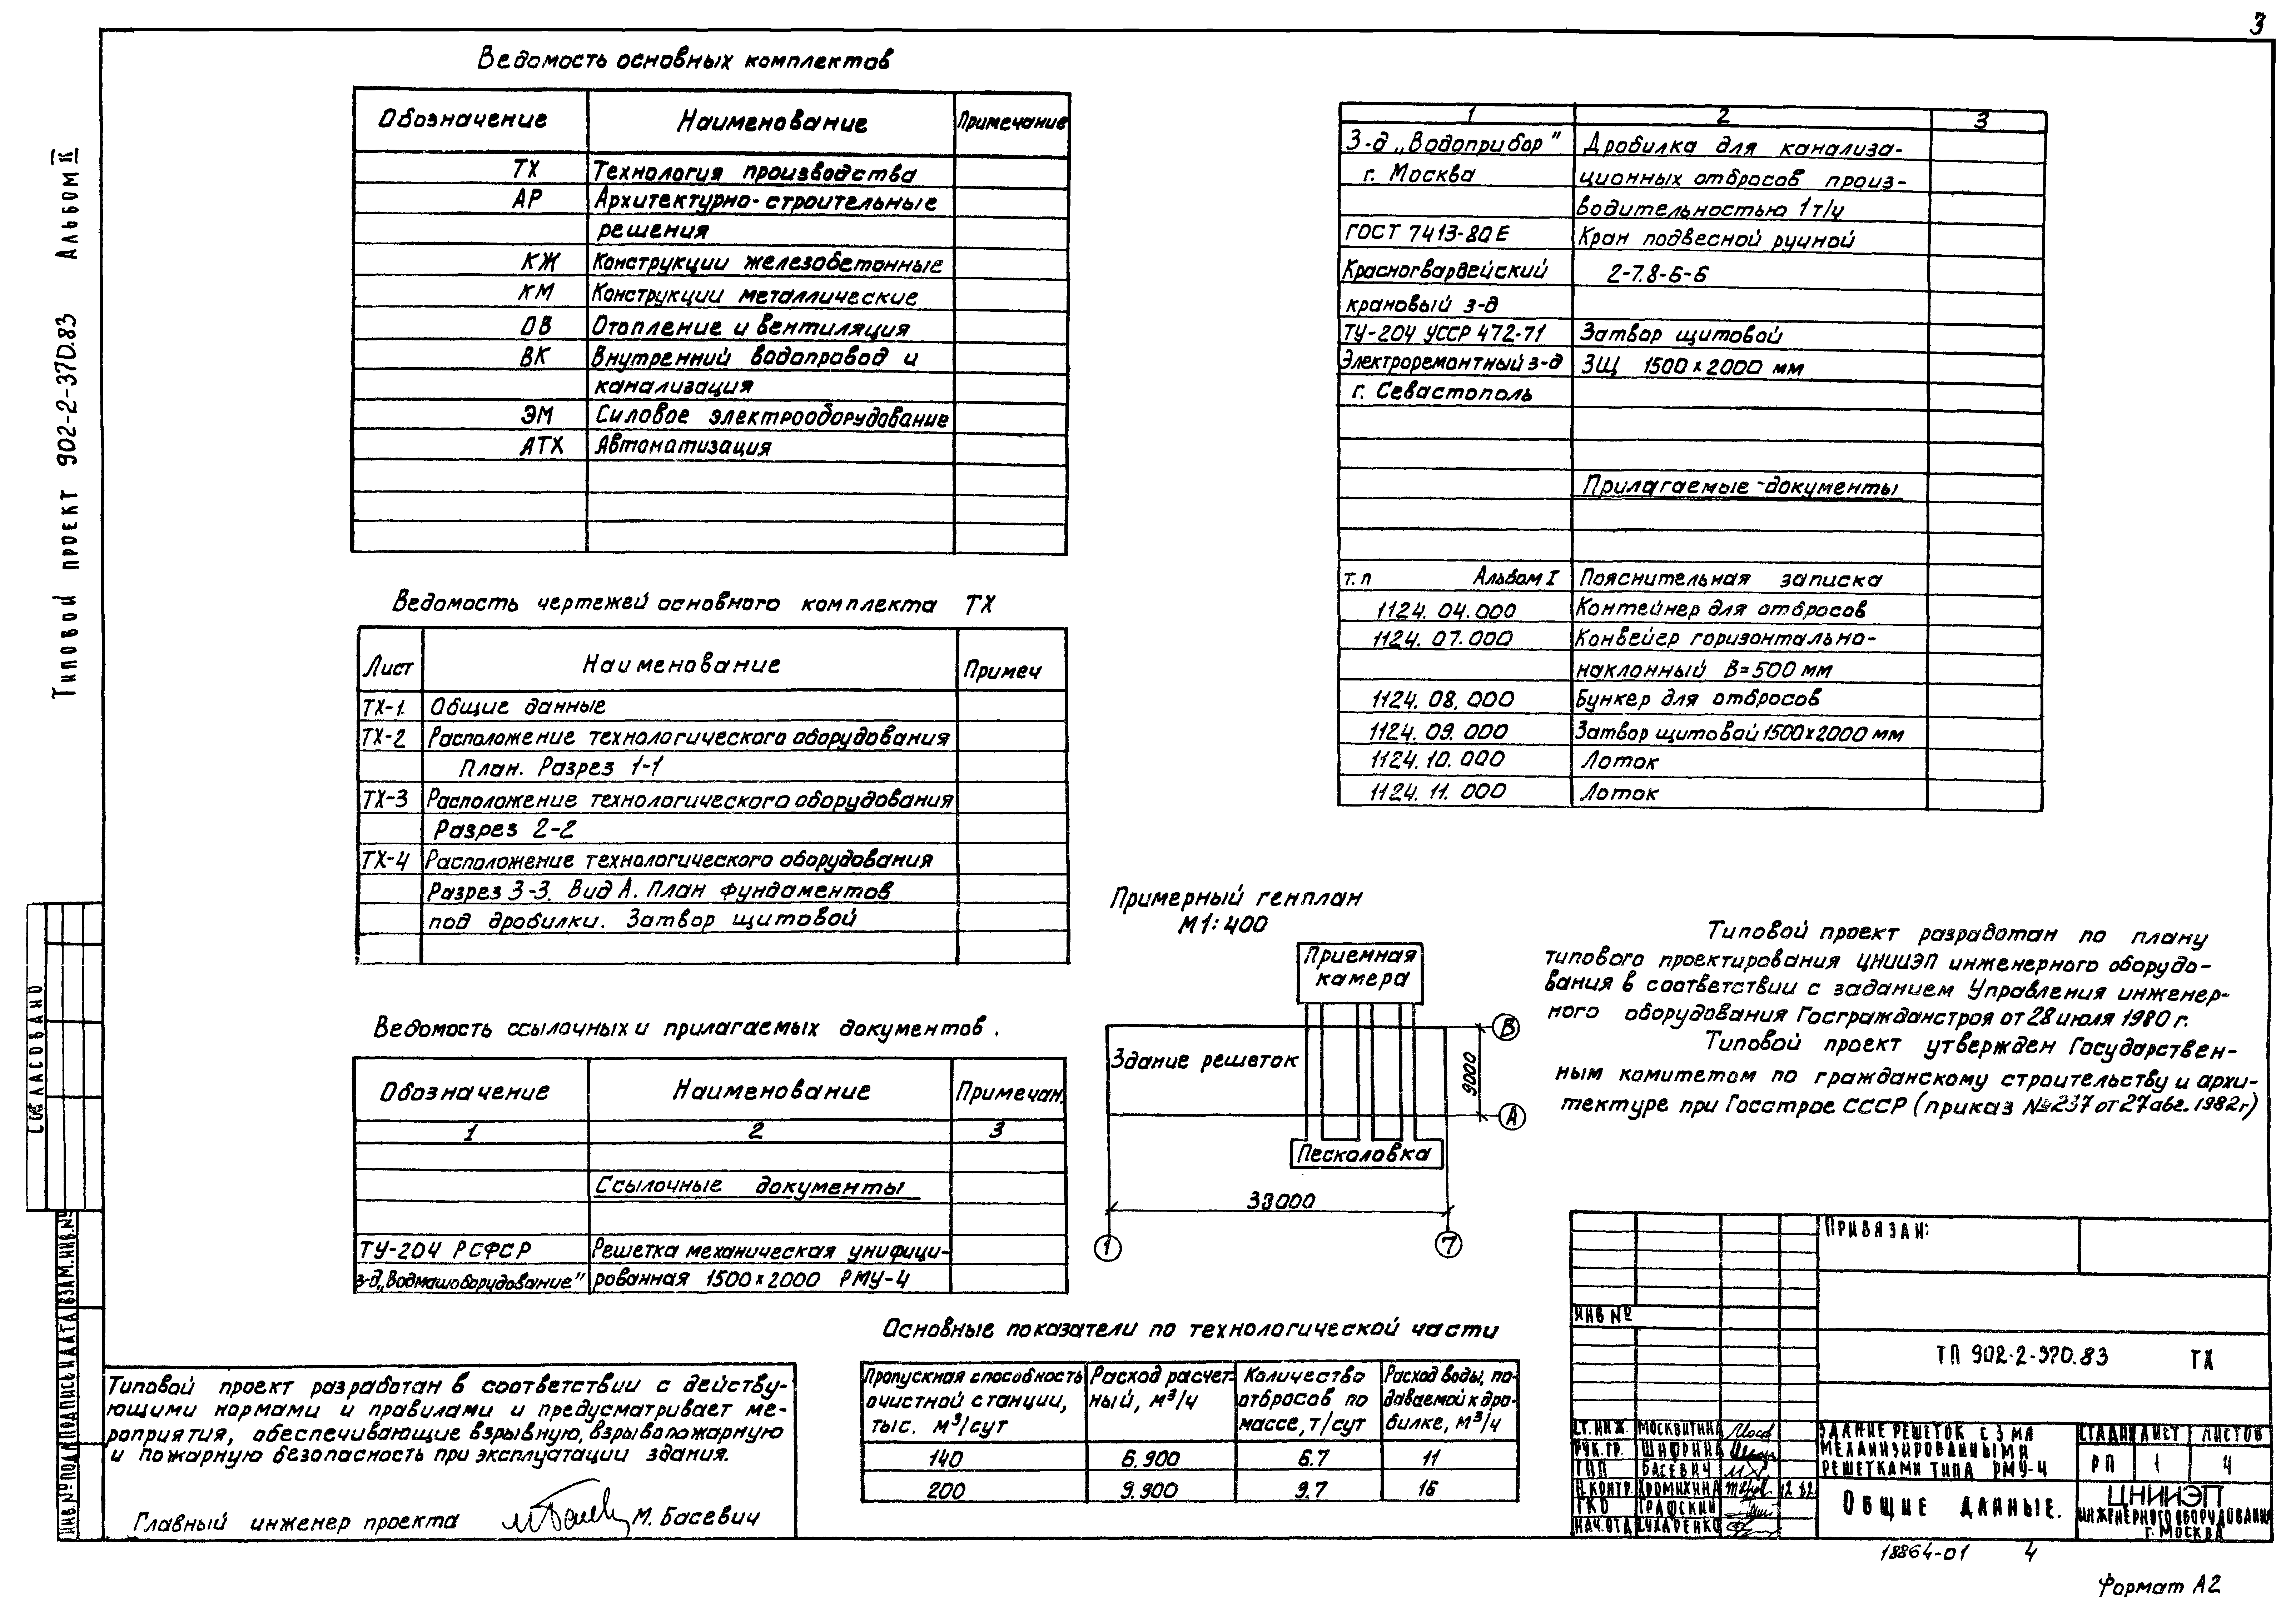 3
Типовой проект 902-2-370.83 Альбом II
Ведомость основных комплектов
Обозначение Наименование Примечание
ТХ Технология производства
АР Архитектурно-строительные
решения
КЖ Конструкции железобетонные
КМ Конструкции металлические
ОВ Отопление и вентиляция
ВК Внутренний водопровод и
канализация
ЭМ Силовое электрооборудование
АТХ Автоматизация
Ведомость чертежей основного комплекта ТХ
Лист Наименование Примеч
ТХ-1. Общие данные
ТХ-2 Расположение технологического оборудования
План. Разрез 1-1
ТХ-3 Расположение технологического оборудования
Разрез 2-2
ТХ-4 Расположение технологического оборудования
Разрез 3-3. Вид А. План фундаментов
под дробилки. Затвор щитовой
Ведомость ссылочных и прилагаемых документов.
Обозначение Наименование Примечан.
1 2 3
Ссылочные документы
ТУ-204 РСФСР Решетка механическая унифици-
з-д „Водмашоборудование" рованная 1500×2000 РМУ-4
1 2 3
З-д „Водоприбор" Дробилка для канализа-
г. Москва ционных отбросов произ-
водительностью 1т/ч
ГОСТ 7413-80Е Кран подвесной ручной
Красногвардейский 2-7.8-6-6
крановый з-д
ТУ-204 УССР 472-71 Затвор щитовой
Электроремонтный з-д ЗЩ 1500×2000 мм
г. Севастополь
Прилагаемые документы
т.п Альбом I Пояснительная записка
1124. 04. 000 Контейнер для отбросов
1124. 07. 000 Конвейер горизонтально-
наклонный В=500 мм
1124. 08. 000 Бункер для отбросов
1124. 09. 000 Затвор щитовой 1500×2000 мм
1124. 10. 000 Лоток
1124. 11. 000 Лоток
Примерный генплан
М1:400
Приемная
камера
Здание решеток
Песколовка
В
А
9000
33000
1
7
Типовой проект разработан по плану
типового проектирования ЦНИИЭП инженерного оборудо-
вания в соответствии с заданием Управления инженер-
ного оборудования Госгражданстроя от 28 июля 1980 г.
Типовой проект утвержден Государствен-
ным комитетом по гражданскому строительству и архи-
тектуре при Госстрое СССР (приказ №237 от 27 авг. 1982г)
Основные показатели по технологической части
Пропускная способность Расход расчет- Количество Расход воды, по-
очистной станции, ный, м³/ч отбросов по даваемой к дро-
тыс. м³/сут массе, т/сут билке, м³/ч
140 6.900 6.7 11
200 9.900 9.7 16
Типовой проект разработан в соответствии с действу-
ющими нормами и правилами и предусматривает ме-
роприятия, обеспечивающие взрывную, взрывопожарную
и пожарную безопасность при эксплуатации здания.
Главный инженер проекта М. Басевич
СОГЛАСОВАНО
ИНВ.№ПОДЛ ПОДПИСЬ И ДАТА ВЗАМ.ИНВ.№
ПРИВЯЗАН:
ИНВ №
ТП 902-2-370.83 ТХ
СТ.ИНЖ. МОСКВИТИНА
РУК.ГР. ШИФРИНА
ГИП БАСЕВИЧ
Н.КОНТР. ХРОМИХИНА 12 82
ГКО ГРАФСКИЙ
НАЧ.ОТД СУХАРЕНКО
ЗДАНИЕ РЕШЕТОК С 3МЯ
МЕХАНИЗИРОВАННЫМИ
РЕШЕТКАМИ ТИПА РМУ-4
СТАДИЯ ЛИСТ ЛИСТОВ
РП 1 4
ОБЩИЕ ДАННЫЕ.
ЦНИИЭП
ИНЖЕНЕРНОГО ОБОРУДОВАНИЯ
г. МОСКВА
18864-01 4
Формат А2